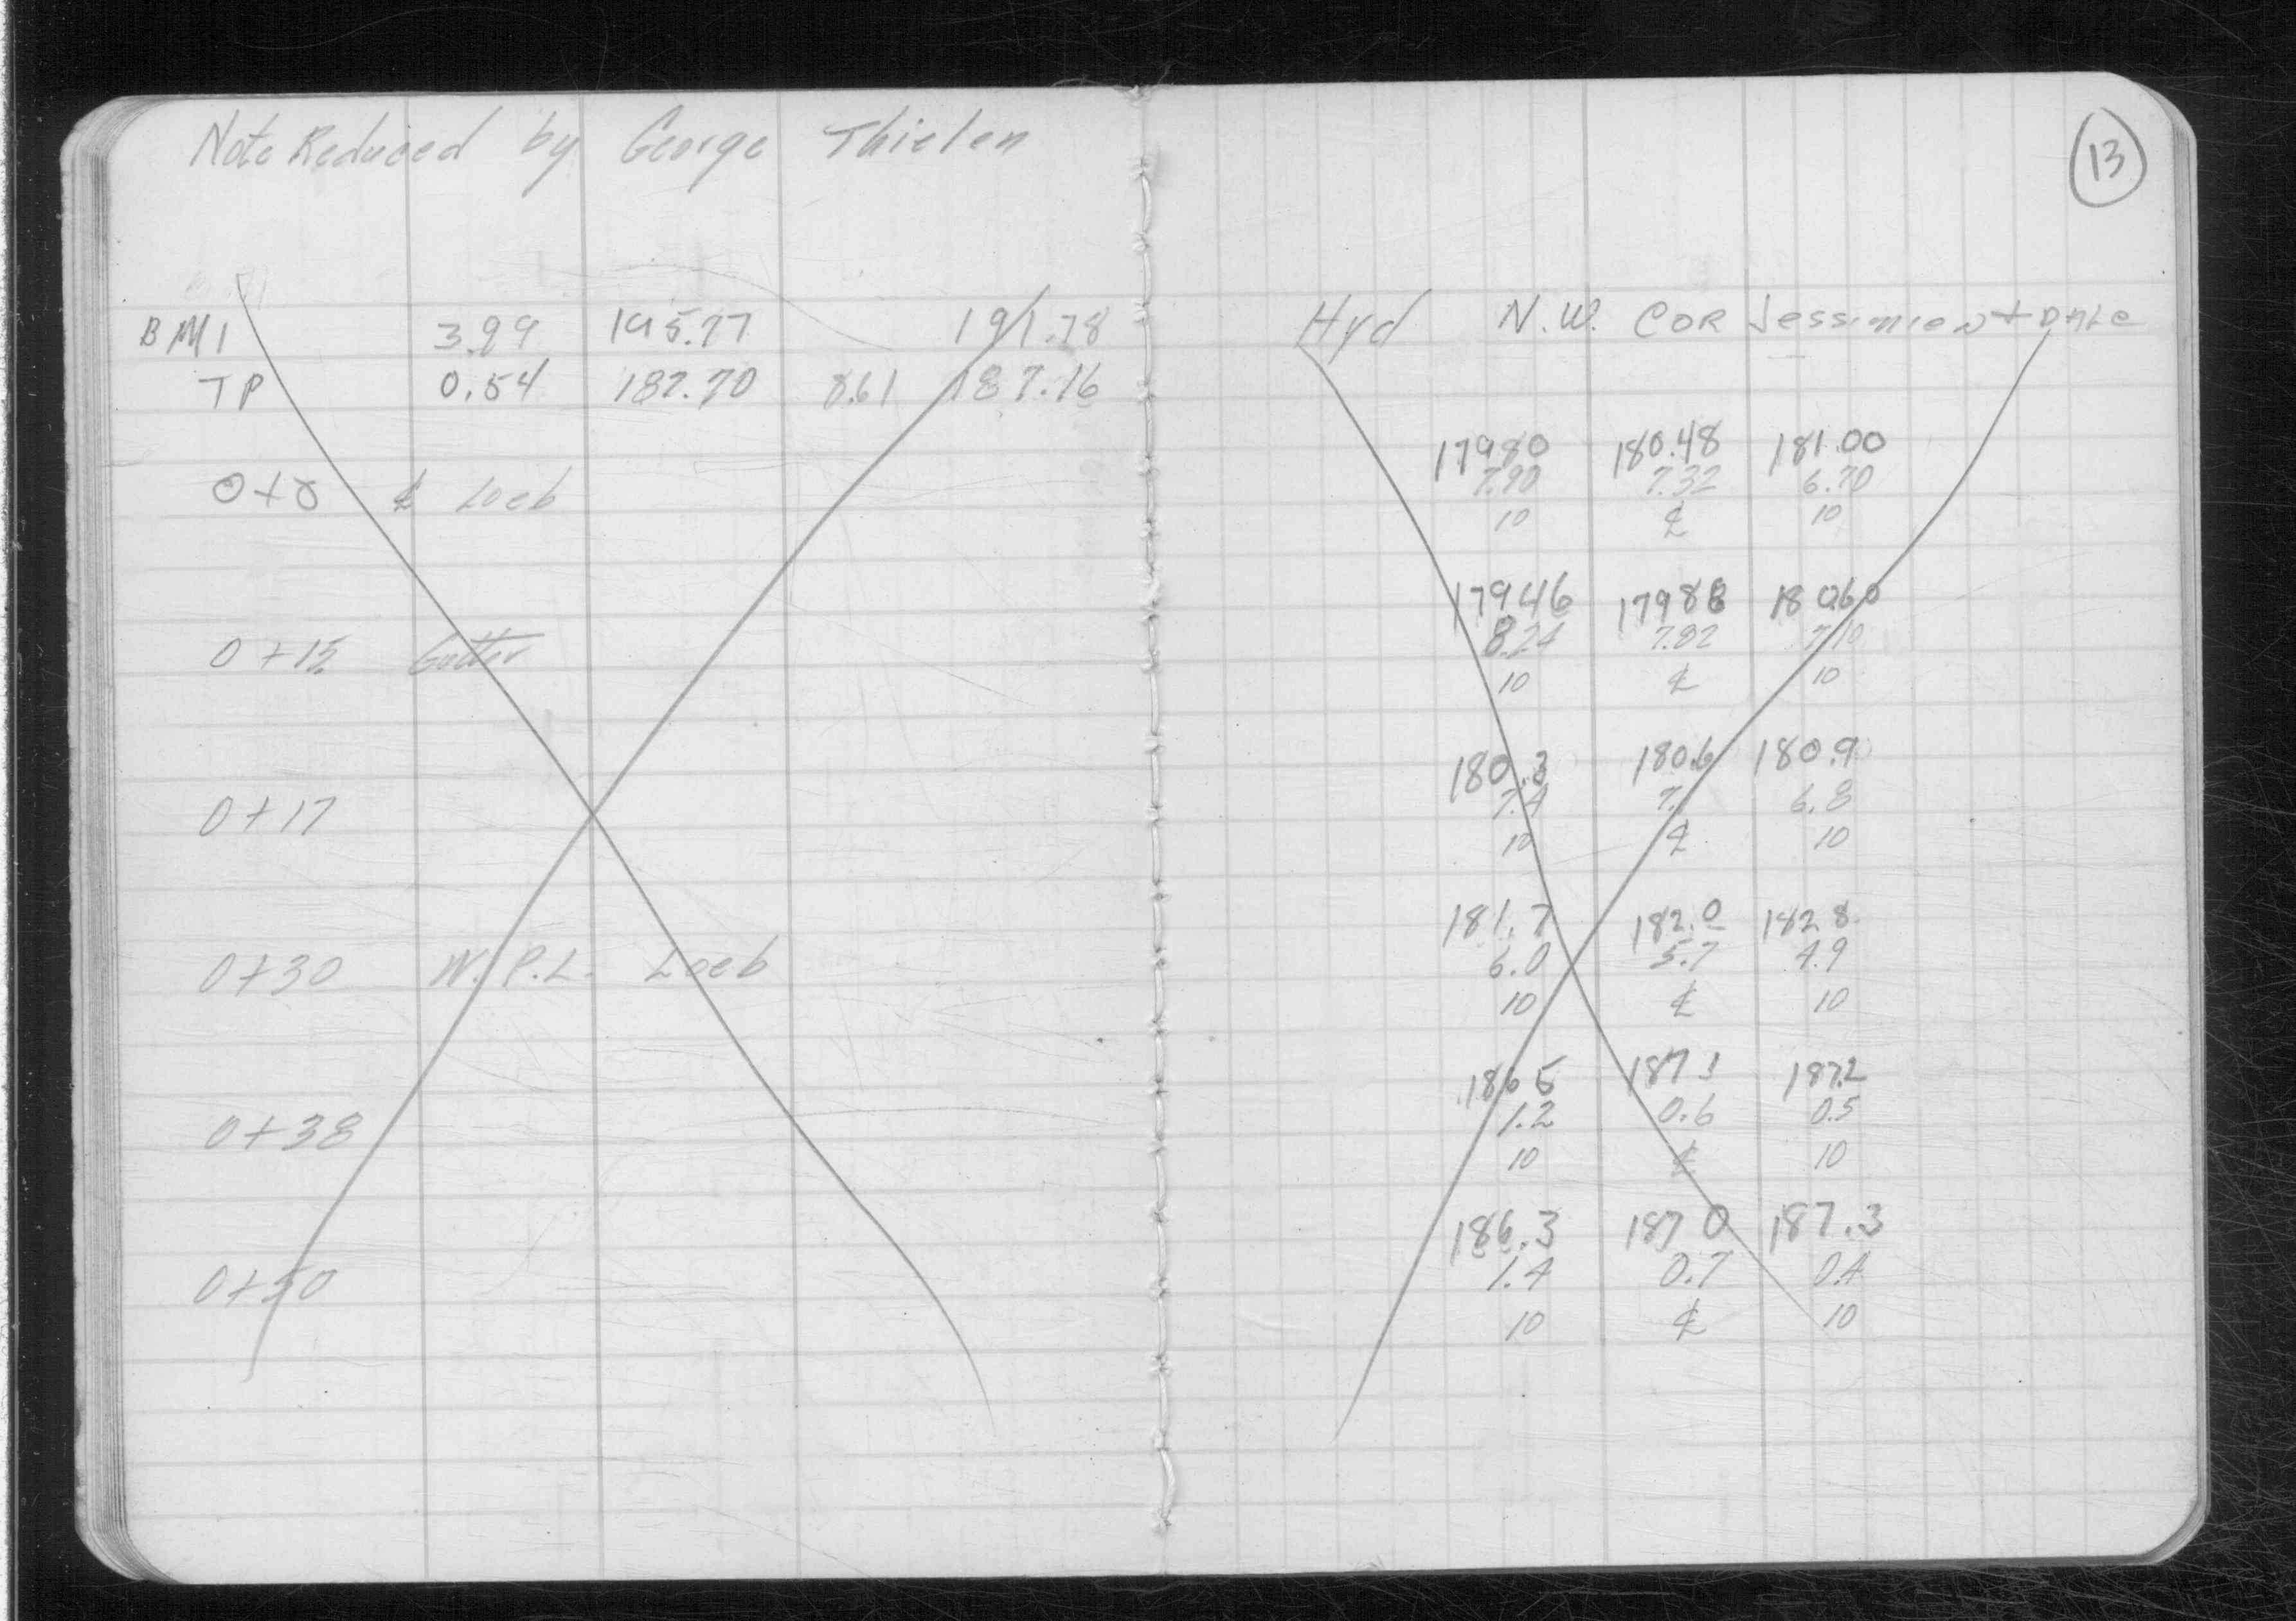 Note Reduced by George Thielen
13
BM 1 3.99 195.77 191.78 Hyd N.W. COR Jessimien + DALE
TP 0.54 187.70 8.61 187.16
179.80 180.48 181.00
0+0 ℄ Loeb 7.90 7.32 6.70
10 ℄ 10
179.46 179.88 180.60
0+15 Gutter 8.24 7.82 7.10
10 ℄ 10
180.3 180.6 180.9
0+17 7.4 6.8
10 ℄ 10
181.7 182.0 182.8
0+30 W.P.L. Loeb 6.0 5.7 4.9
10 ℄ 10
186.5 187.1 187.2
0+38 1.2 0.6 0.5
10 ℄ 10
186.3 187.0 187.3
0+50 1.4 0.7 0.4
10 ℄ 10